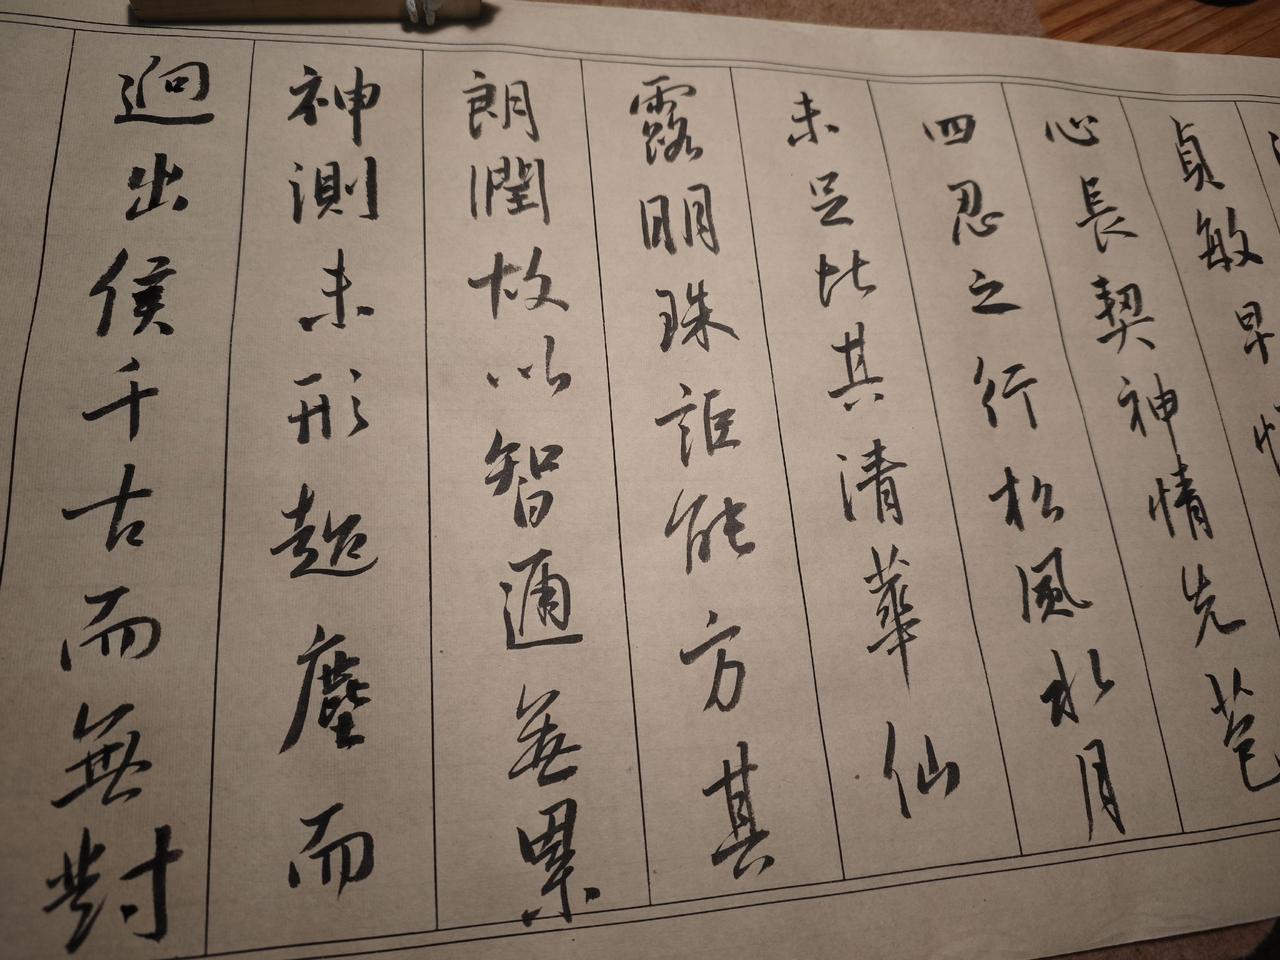 貞敏早
心長契神情先苞
四忍之行松風水月
未足比其清華仙
露明珠詎能方其
朗潤故以智通無累
神測未形超塵而
迥出隻千古而無對